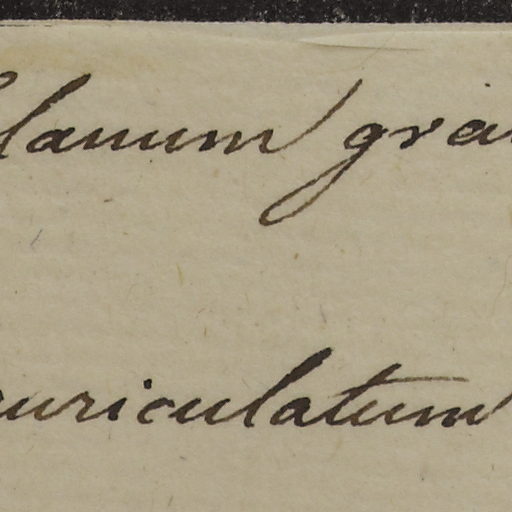 lanum gra
uriculatum